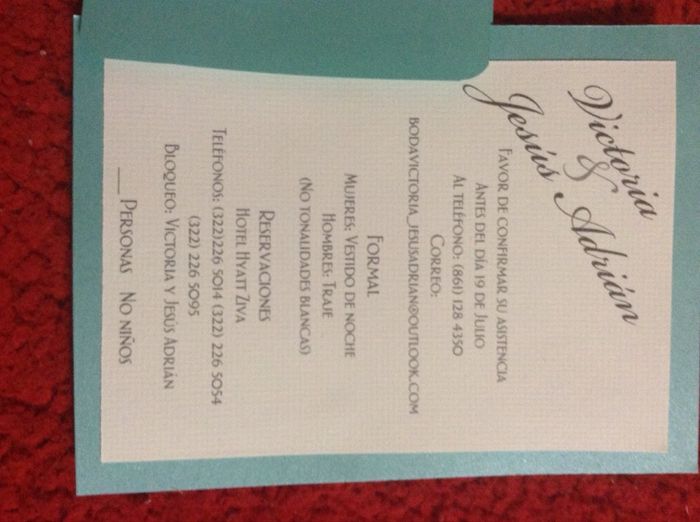 Victoria
&
Jesús Adrián
Favor de confirmar su asistencia
Antes del día 19 de Julio
Al teléfono: (861) 128 4350
Correo:
bodavictoria_jesusadrian@outlook.com
Formal
Mujeres: Vestido de noche
Hombres: Traje
(No tonalidades blancas)
Reservaciones
Hotel Hyatt Ziva
Teléfonos: (322)226 5014 (322) 226 5054
(322) 226 5095
Bloqueo: Victoria y Jesús Adrián
___ Personas No niños